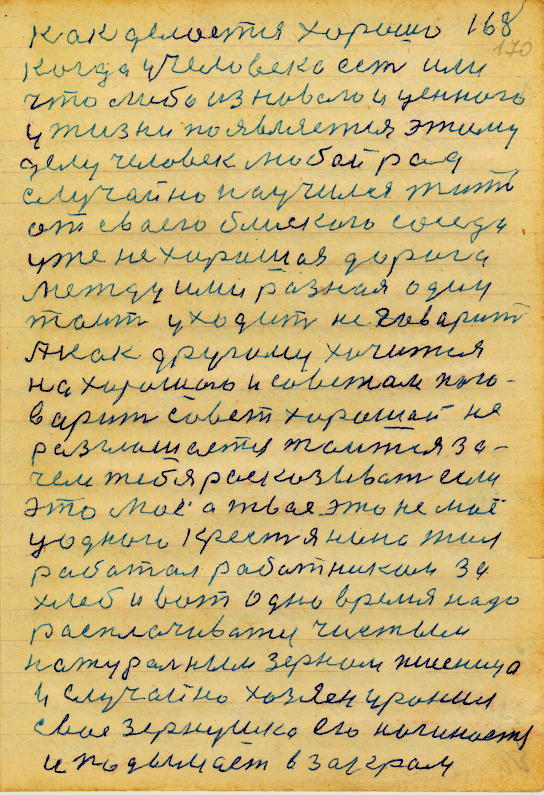 как делоется хорошо 168
170
когда у человека есть или
что либо из новаго и ценного
у жизни появляется этому
делу человек любой рад
случайно научился жить
от своего близкого соседа
уже не хорошая дорога
между ими разная один
таит уходит не говарит
А как другому хочится
на хорошого и советам пого-
варит совет хорошай не
разглошается таится за-
чем тебя расказыват если
это моё а твае это не маё
у одного крестянина жил
работал работником за
хлеб и вот одно время надо
расплачиватц чистым
натуралным зерном пшеница
и случайно хозяен уронил
свое зернушко его
и подымает в закром